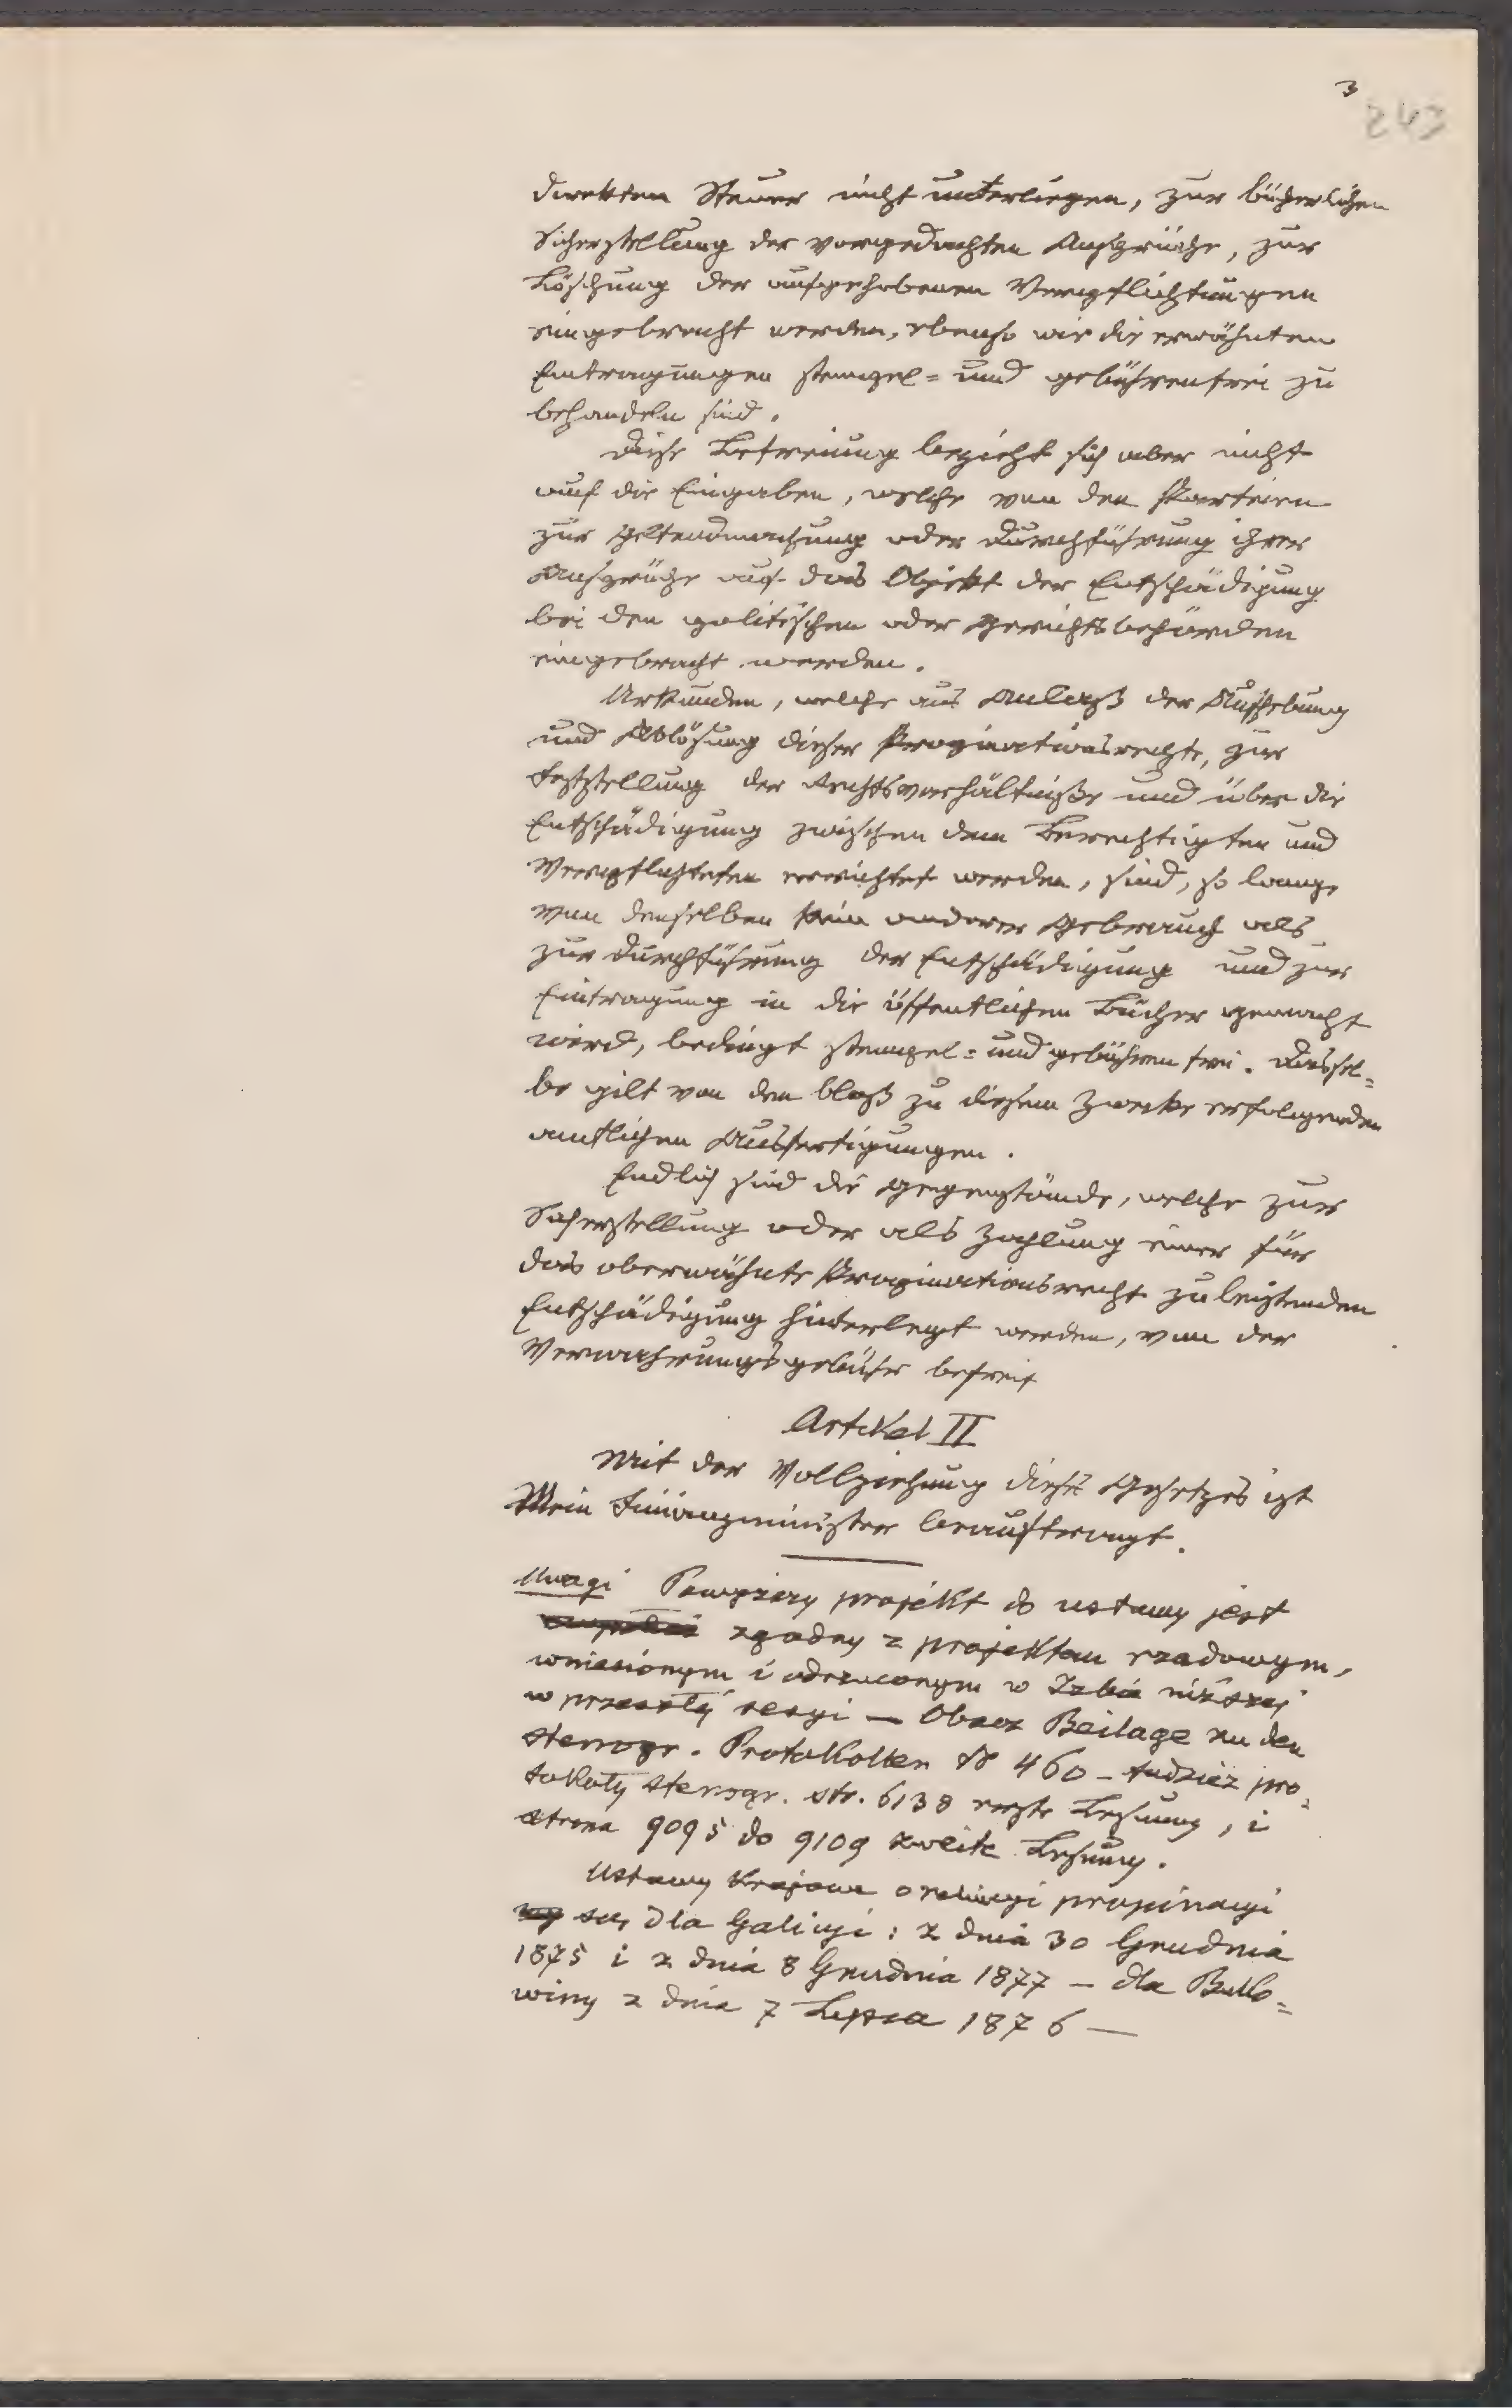 3
243
direkten Steuer nicht unterliegen, zur bücherlichen
Sicherstellung der vorgedachten Ansprüche, zur
Löschung der aufgehobenen Verpflichtungen
eingebracht werden, ebenso wie die erwähnten
Eintragungen stempel= und gebührenfrei zu
behandeln sind.
Diese Befreiung bezieht sich aber nicht
auf die Eingaben, welche von den Parteien
zur Geltendmachung oder Durchführung ihrer
Ansprüche auf das Objekt der Entschädigung
bei den politischen oder Gerichtsbehörden
eingebracht werden.
Urkunden, welche aus Anlaß der Aufhebung
und Ablösung dieser Propinationsrechte, zur
Feststellung der Rechtsverhältniße und über die
Entschädigung zwischen dem Berechtigten und
Verpflichteten errichtet werden, sind, so lange
von denselben kein anderer Gebrauch als
zur Durchführung der Entschädigung und zur
Eintragung in die öffentlichen Bücher gemacht
wird, bedingt stempel= und gebührenfrei. Dassel=
be gilt von den bloß zu diesem Zwecke erfolgenden
amtlichen Ausfertigungen.
Endlich sind die Gegenstände, welche zur
Sicherstellung oder als Zahlung einer für
das oberwähnte Propinationsrecht zu leistenden
Entschädigung hinterlegt werden, von der
Verwahrungsgebühr befreit
Artikel II
Mit der Vollziehung dieses Gesetzes ist
Mein Finanzminister beauftragt.
Uwagi Powyższy projekt do ustawy jest
zgodny z projektem rządowym,
wniesionym i odrzuconym w Izbie niższej
w przeszłéj sesyi — Obacz Beilage zu den
stenogr. Protokollen № 460 – tudzież pro=
tokoły stenogr. str. 6138 erste Lesung, i
strona 9095 do 9109 zweite Lesung.
Ustawy krajowe o propinacyi
są dla Galicyi: z dnia 30 Grudnia
1875 i z dnia 8 Grudnia 1877 — dla Buko=
winy z dnia 7 Lipca 1876 —